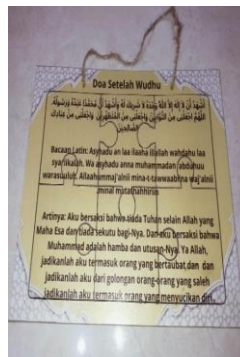 Doa Setelah Wudhu
أَشْهَدُ أَنْ لَا إِلَهَ إِلَّا اللَّهُ وَحْدَهُ لَا شَرِيكَ لَهُ وَأَشْهَدُ أَنَّ مُحَمَّدًا عَبْدُهُ وَرَسُولُهُ
اللَّهُمَّ اجْعَلْنِي مِنَ التَّوَّابِينَ وَاجْعَلْنِي مِنَ الْمُتَطَهِّرِينَ وَاجْعَلْنِي مِنْ عِبَادِكَ
الصَّالِحِينَ
Bacaan Latin: Asyhadu an laa ilaaha illallah wahdahu laa
syariikalah. Wa asyhadu anna muhammadan 'abduhuu
warasuuluh. Allaahummaj'alnii mina-t-tawwaabiina waj'alnii
minal mutathahhiriin
Artinya: Aku bersaksi bahwa tiada Tuhan selain Allah yang
Maha Esa dan tiada sekutu bagi-Nya. Dan aku bersaksi bahwa
Muhammad adalah hamba dan utusan-Nya. Ya Allah,
jadikanlah aku termasuk orang yang bertaubat dan dan
jadikanlah aku dari golongan orang-orang yang saleh
jadikanlah aku termasuk orang yang menyucikan diri.